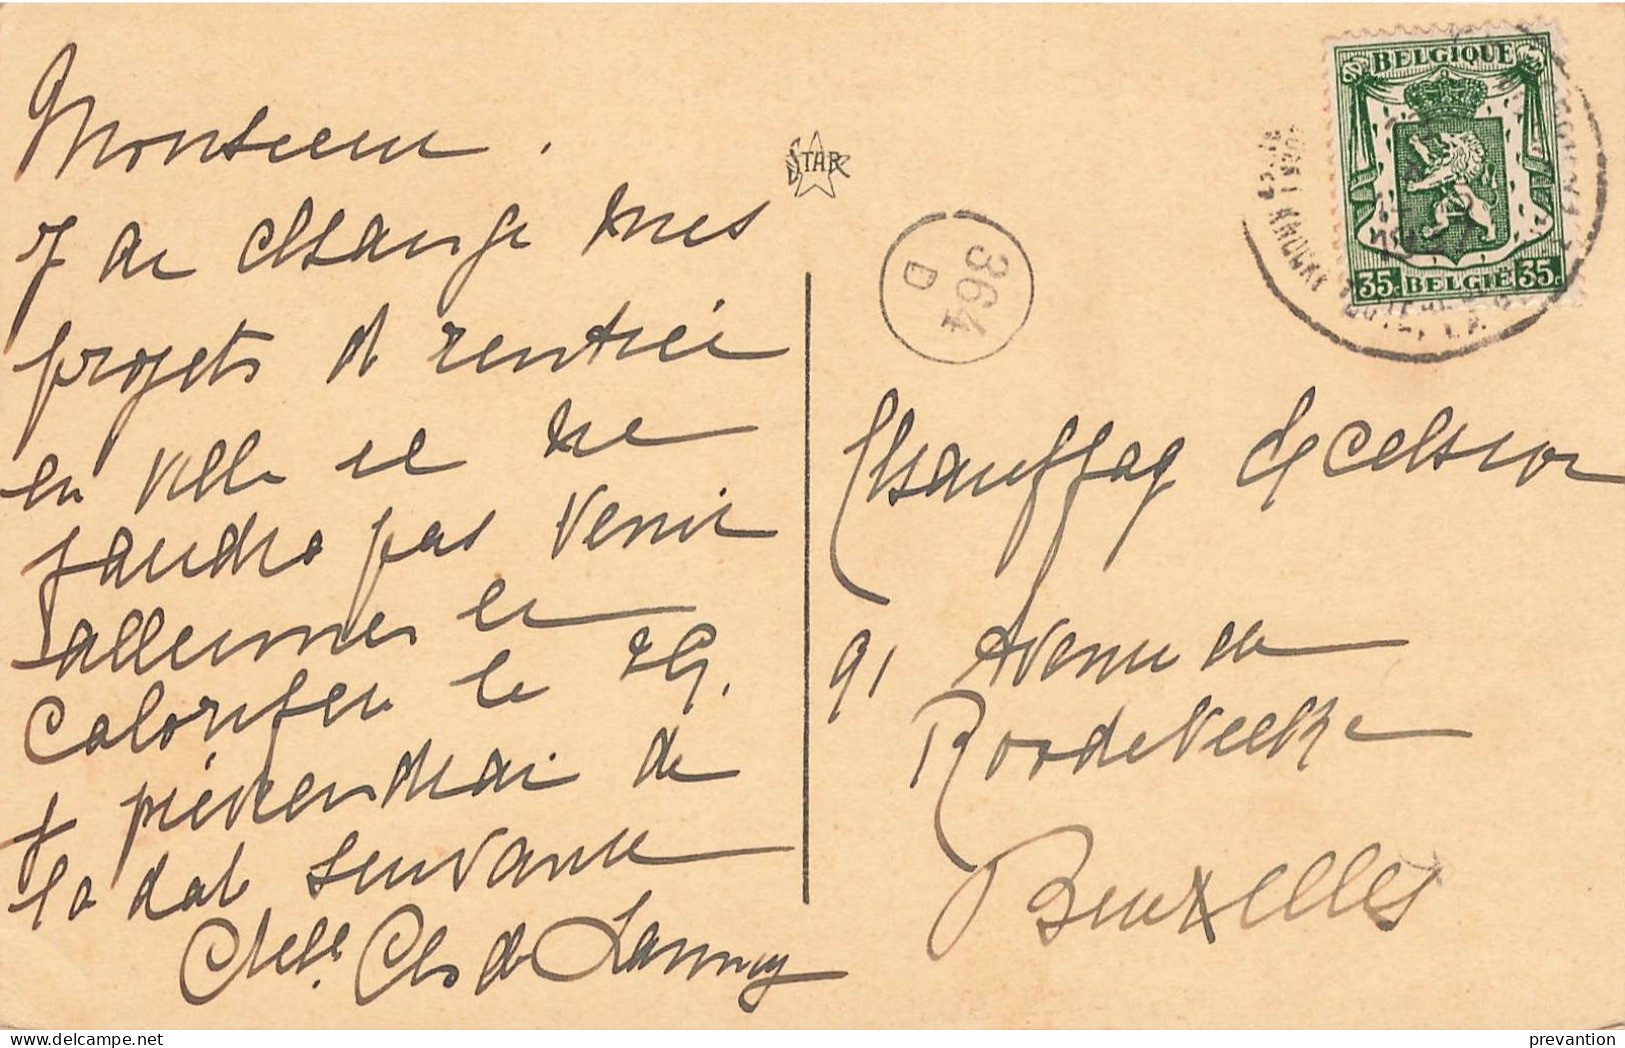 Monsieur.
J ai changé mes
projets de rentrée
en ville et il ne
faudra pas venir
allumer le
Calorifère le 29.
Je préviendrai de
la date suivante
Ctesse Chs de Lannoy
STAR
364
D
BELGIQUE
35c BELGIË 35c
KNOCKE
Chauffage Excelsior
91 Avenue de
Roodebeek
Bruxelles
prevantion